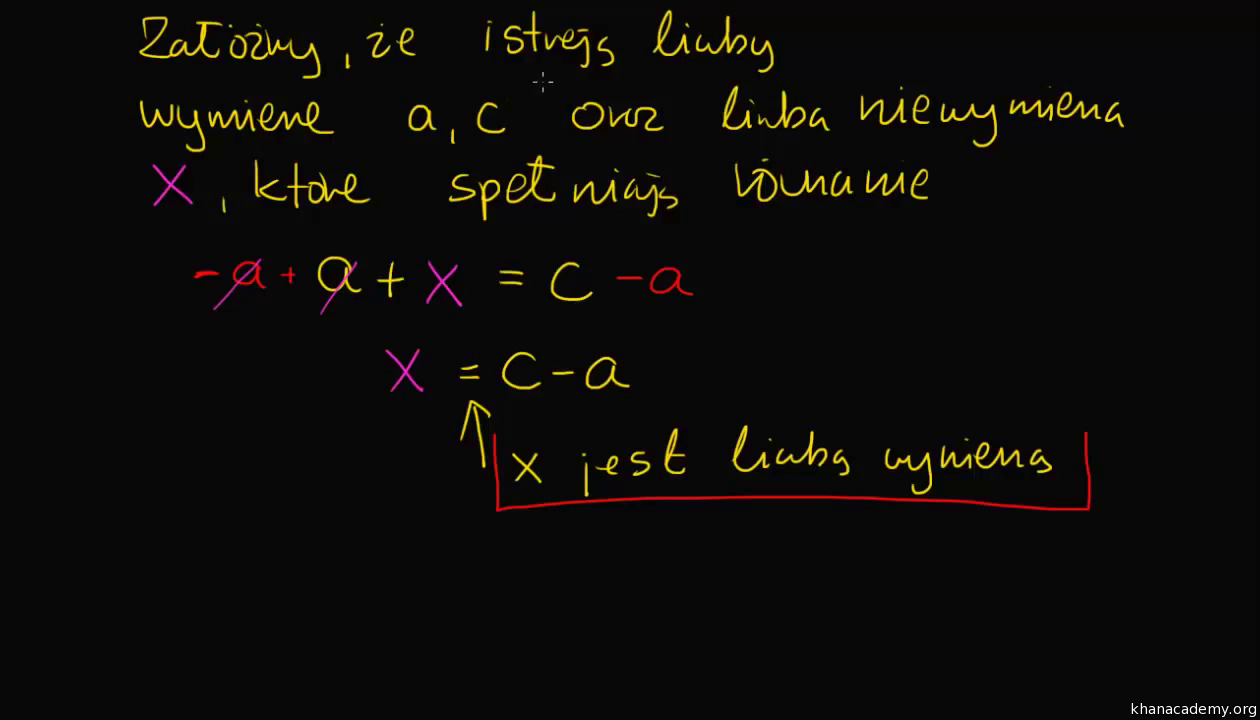 Załóżmy, że istnieją liczby
wymierne a, c oraz liczba niewymierna
x, które spełniają równanie
-a + a + x = c - a
x = c - a
x jest liczbą wymierną
khanacademy.org